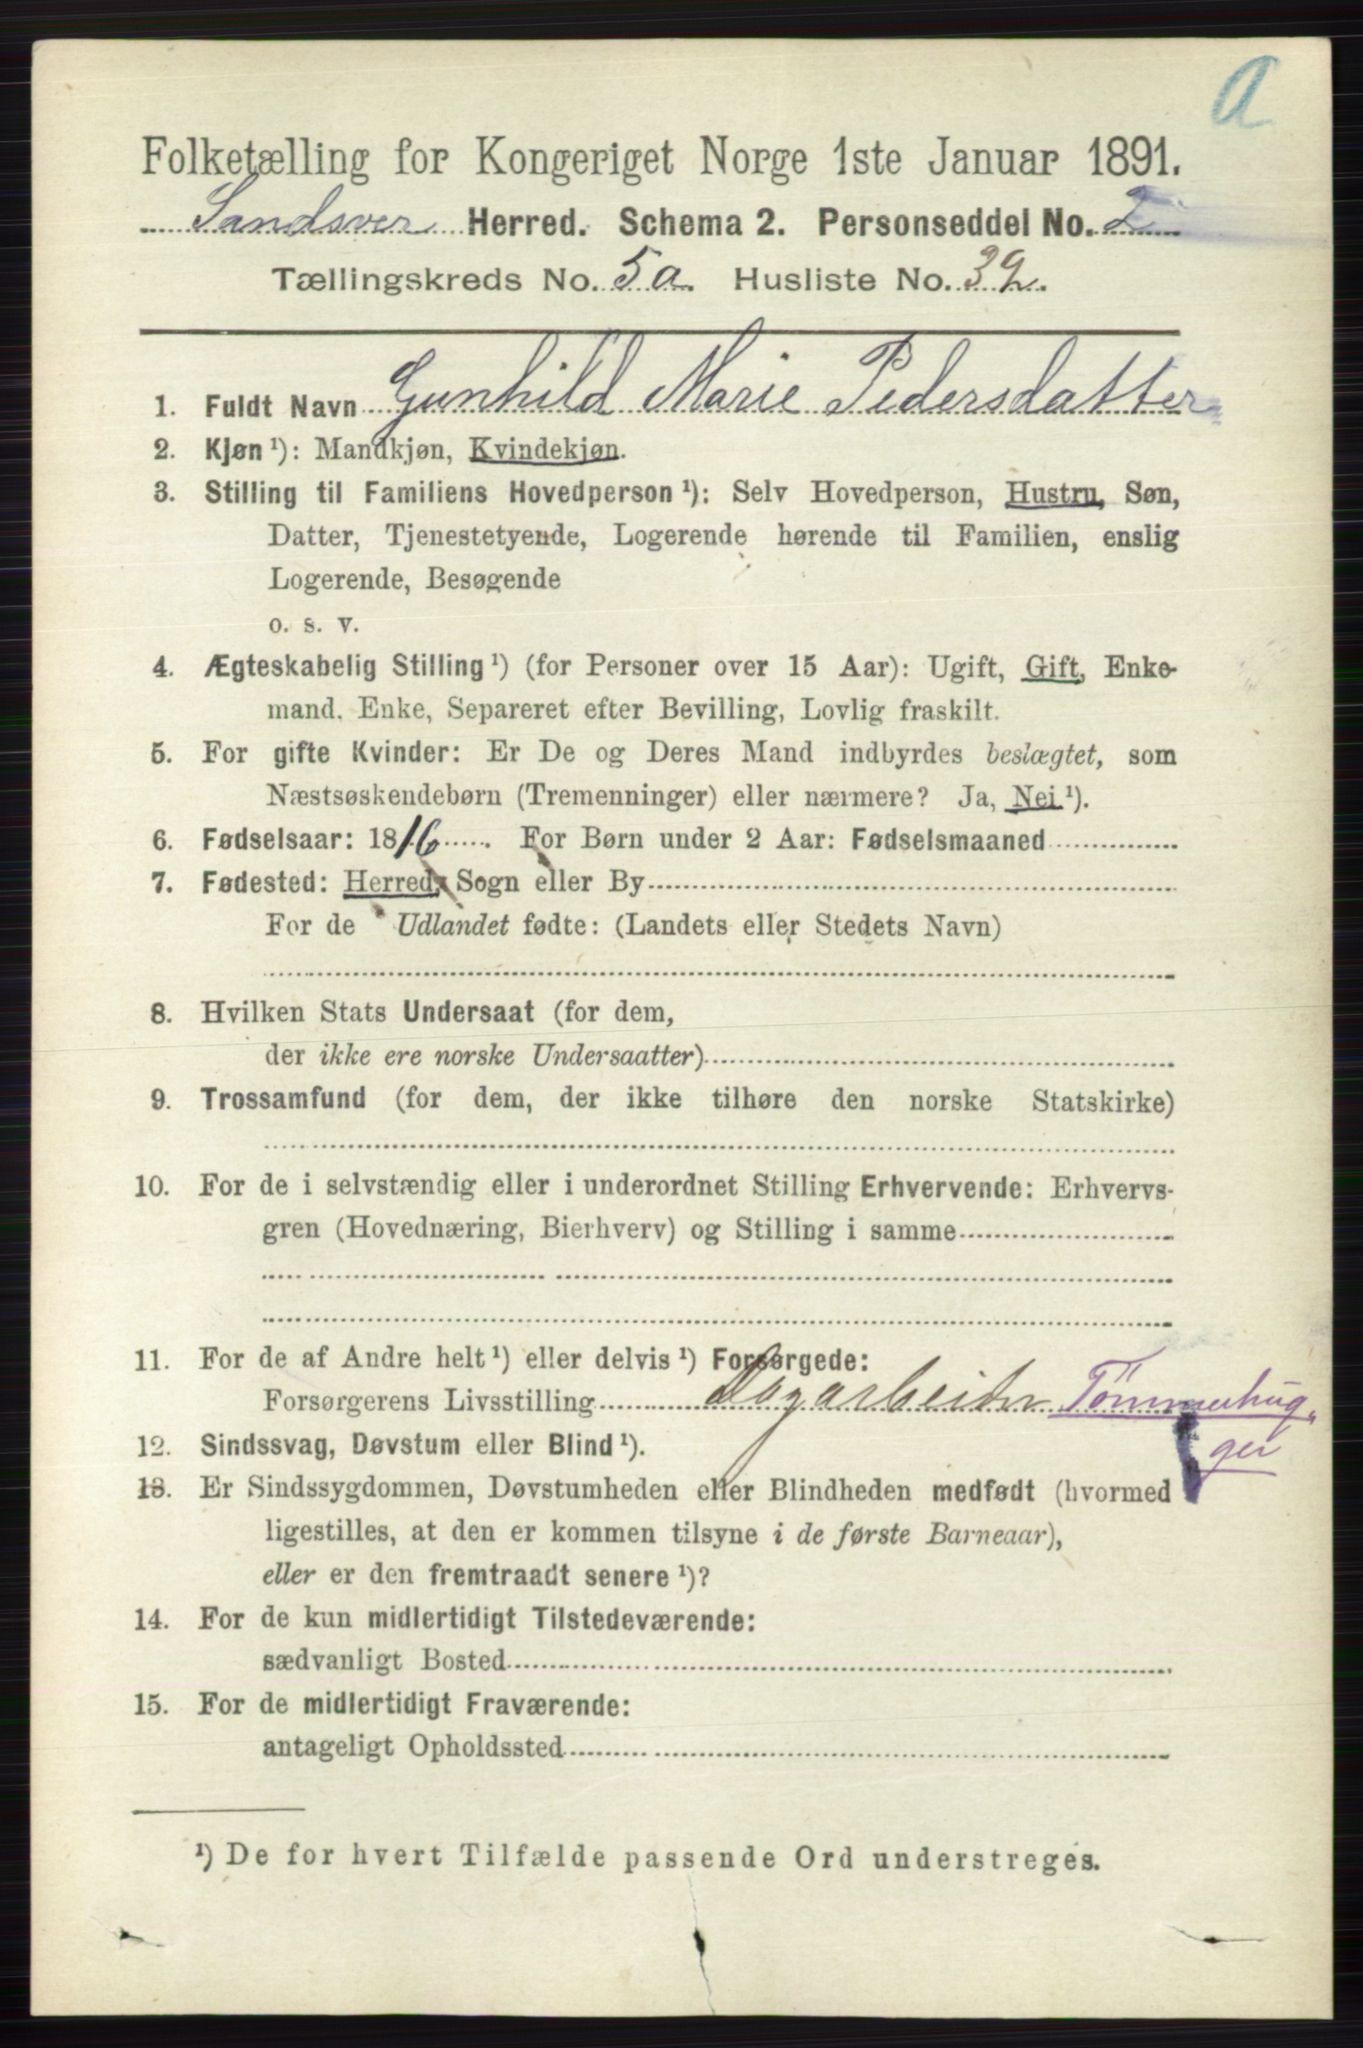 a
Folketælling for Kongeriget Norge 1ste Januar 1891.
Sandsver Herred. Schema 2. Personseddel No. 2
Tællingskreds No. 5a. Husliste No. 32.
1. Fuldt Navn Gunhild Marie Pedersdatter
2. Kjøn ¹): Mandkjøn, Kvindekjøn.
3. Stilling til Familiens Hovedperson ¹): Selv Hovedperson, Hustru, Søn,
Datter, Tjenestetyende, Logerende hørende til Familien, enslig
Logerende, Besøgende
o. s. v.
4. Ægteskabelig Stilling ¹) (for Personer over 15 Aar): Ugift, Gift, Enke-
mand, Enke, Separeret efter Bevilling, Lovlig fraskilt.
5. For gifte Kvinder: Er De og Deres Mand indbyrdes beslægtet, som
Næstsøskendebørn (Tremenninger) eller nærmere? Ja, Nei ¹).
6. Fødselsaar: 1816. For Børn under 2 Aar: Fødselsmaaned
7. Fødested: Herred, Sogn eller By
For de Udlandet fødte: (Landets eller Stedets Navn)
8. Hvilken Stats Undersaat (for dem,
der ikke ere norske Undersaatter)
9. Trossamfund (for dem, der ikke tilhøre den norske Statskirke)
10. For de i selvstændig eller i underordnet Stilling Erhvervende: Erhvervs-
gren (Hovednæring, Bierhverv) og Stilling i samme
11. For de af Andre helt ¹) eller delvis ¹) Forsørgede:
Forsørgerens Livsstilling Dagarbeider Tømmerhug-
ger
12. Sindssvag, Døvstum eller Blind ¹).
13. Er Sindssygdommen, Døvstumheden eller Blindheden medfødt (hvormed
ligestilles, at den er kommen tilsyne i de første Barneaar),
eller er den fremtraadt senere ¹)?
14. For de kun midlertidigt Tilstedeværende:
sædvanligt Bosted
15. For de midlertidigt Fraværende:
antageligt Opholdssted
¹) De for hvert Tilfælde passende Ord understreges.